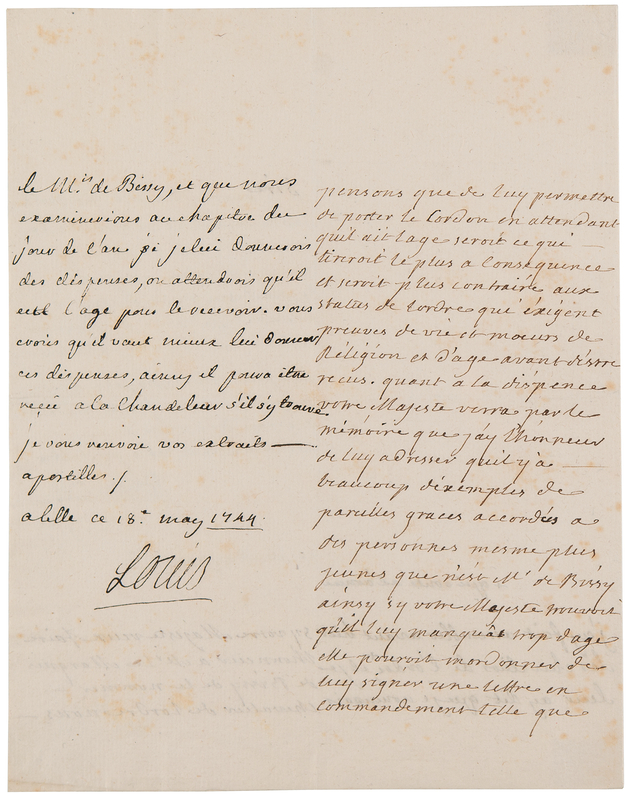 le M.is de Bissy, et que nous
examinerions au chapitre du
jour de l'an si je lui donnerois
des dispenses, ou attendrois qu'il
eut l'age pour le recevoir. vous
crois qu'il vaut mieux lui donner
ces dispenses, ainsy il poura être
reçu a la Chandeleur s'il s'y trouve
je vous renvoie vos extraits
apostilles /.
a lille ce 18.e may 1744.
Louis
pensons que de luy permettre
de porter le Cordon en attendant
quil ait lage seroit ce qui
tireroit le plus a consequence
et seroit plus contraire aux
statuts de lordre qui éxigent
preuves de vie et moeurs de
Réligion et d'age avant d'estre
recus. quant a la dispence
votre Majeste verra par le
mémoire que j'ay l'honneur
de luy adresser quil y a
beaucoup déxemples de
pareilles graces accordées a
des personnes mesme plus
jeunes que n'est Mr de Bissy
ainsy sy votre Majeste trouvoit
qu'il luy manquât trop d'age
elle pouroit mordonner de
luy signer une lettre en
commandement telle que